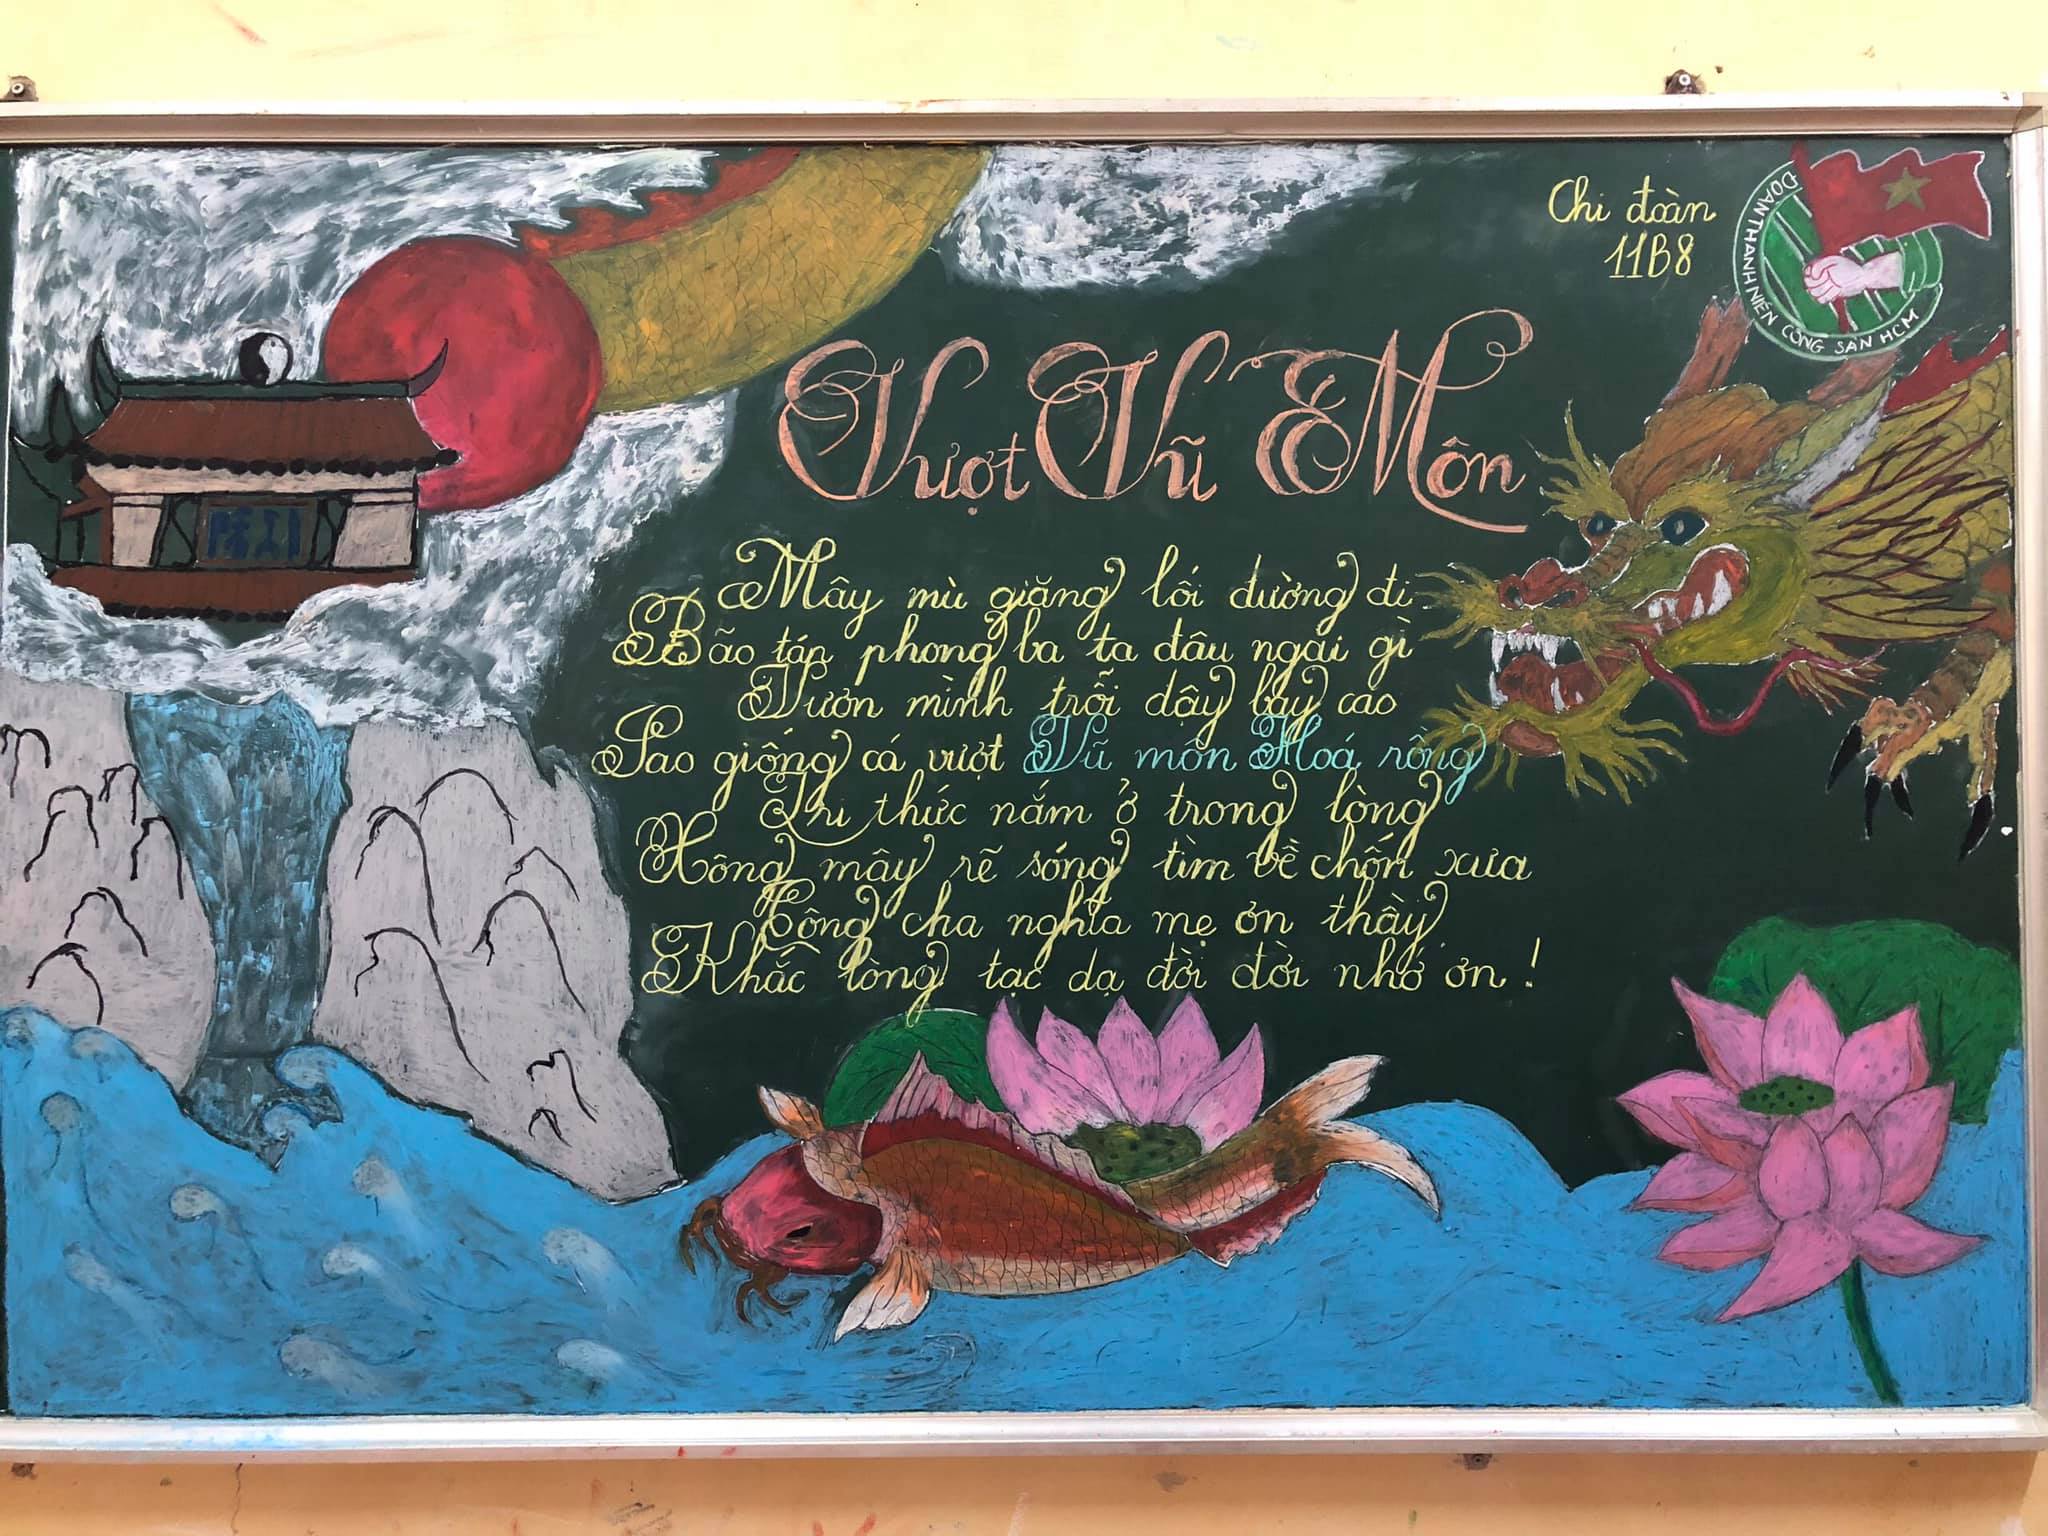 Chi đoàn
11B8
ĐOÀN THANH NIÊN CỘNG SẢN HCM
Vượt Vũ Môn
Mây mù giăng lối đường đi
Bão táp phong ba ta đâu ngại gì
Vươn mình trỗi dậy bay cao
Sao giống cá vượt Vũ môn Hoá rồng
Tri thức nắm ở trong lòng
Hông mây rẽ sóng tìm về chốn xưa
Công cha nghĩa mẹ ơn thầy
Khắc lòng tạc dạ đời đời nhớ ơn!